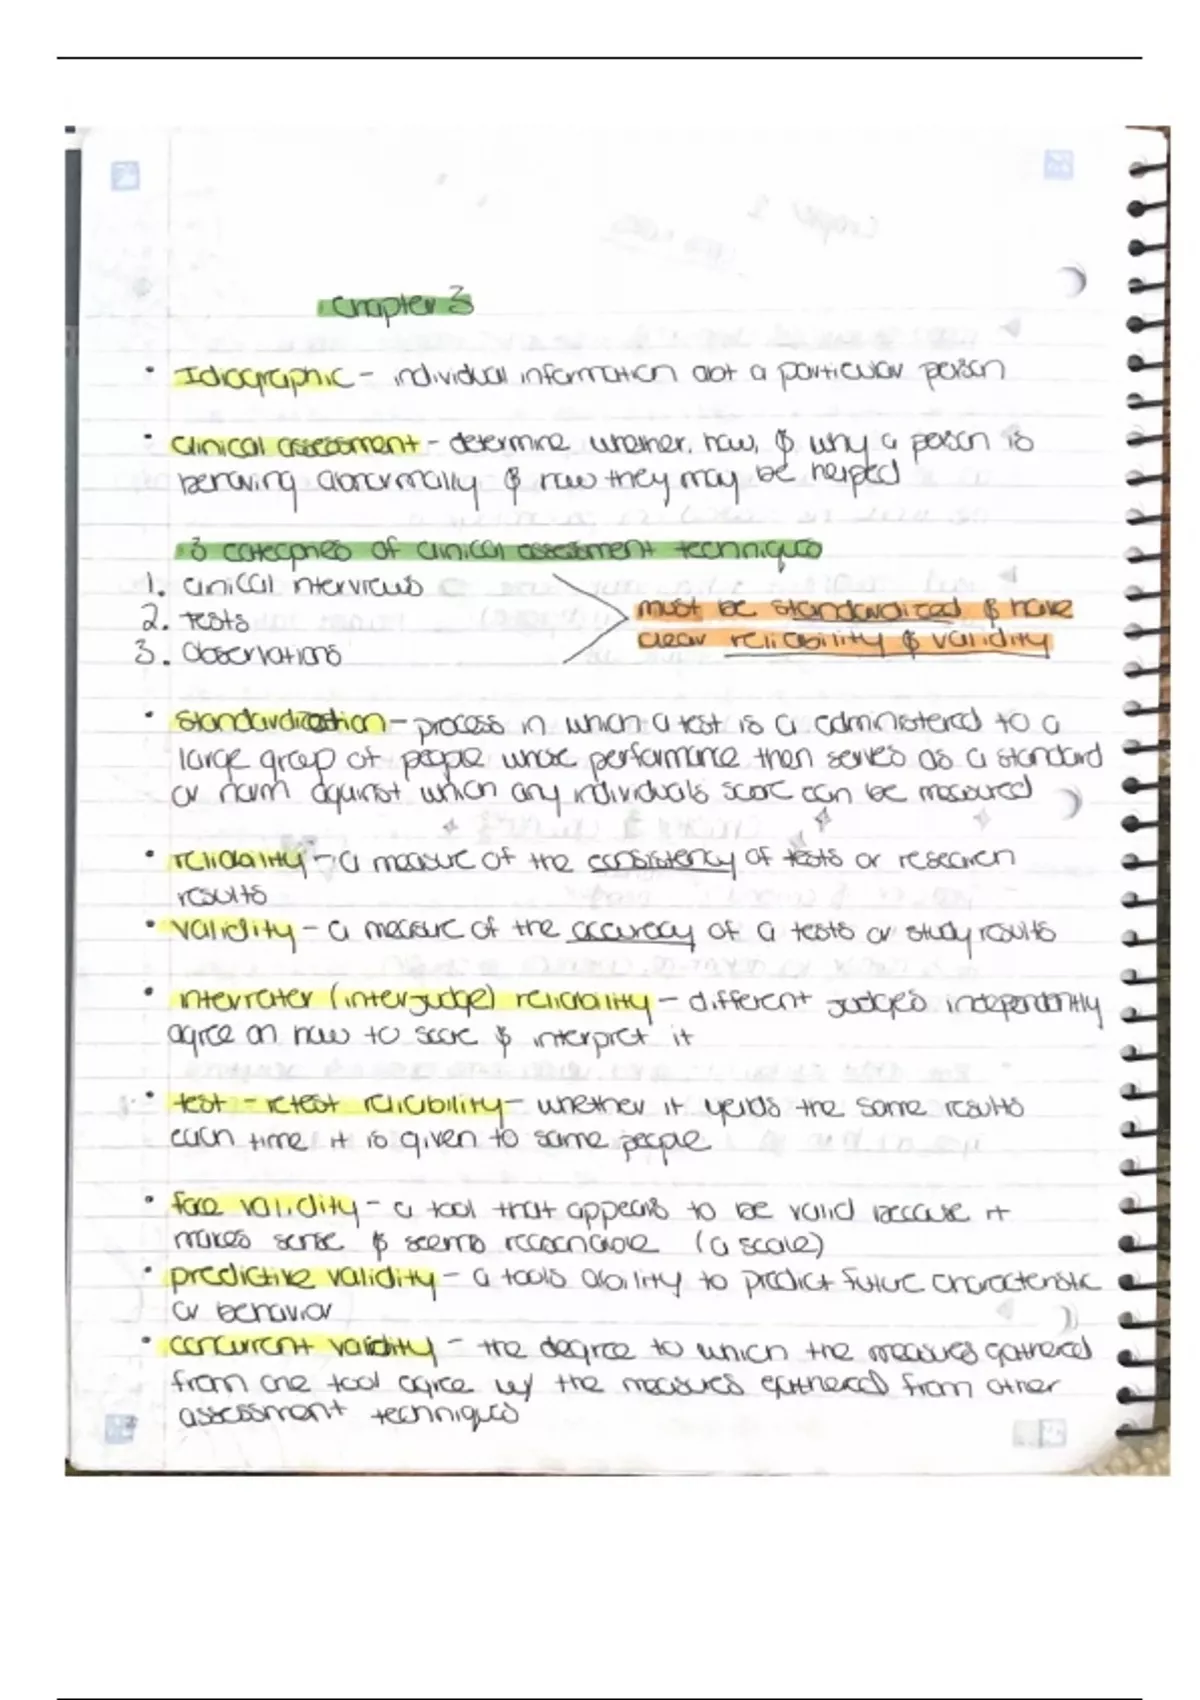 Chapter 3
• Idiographic - individual information abt a particular person
• Clinical assessment - determine whether, how, & why a person is
behaving abnormally & how they may be helped
3 categories of clinical assessment techniques
1. clinical interviews
2. tests
3. Observations
must be standardized & have
clear reliability & validity
• Standardization - process in which a test is a administered to a
large group of people whose performance then serves as a standard
or norm against which any individuals score can be measured
• reliability - a measure of the consistency of tests or research
results
• validity - a measure of the accuracy of a tests or study results
• interrater (interjudge) reliability - different judges independently
agree on how to score & interpret it
• test - retest reliability - whether it yeilds the same results
each time it is given to same people
• face validity - a tool that appears to be valid because it
makes sense & seems (a scale)
• predictive validity - a tools ability to predict future characteristic
or behavior
• concurrent validity - the degree to which the measures gathered
from one tool agree w/ the measures gathered from other
assessment techniques